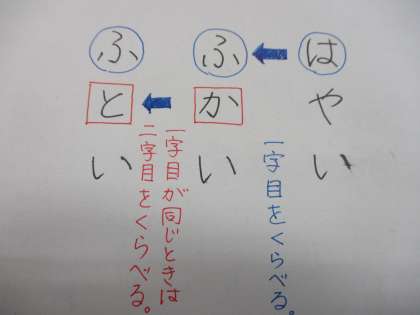 はやい
一字目をくらべる。
ふかい
一字目が同じときは
二字目をくらべる。
ふとい